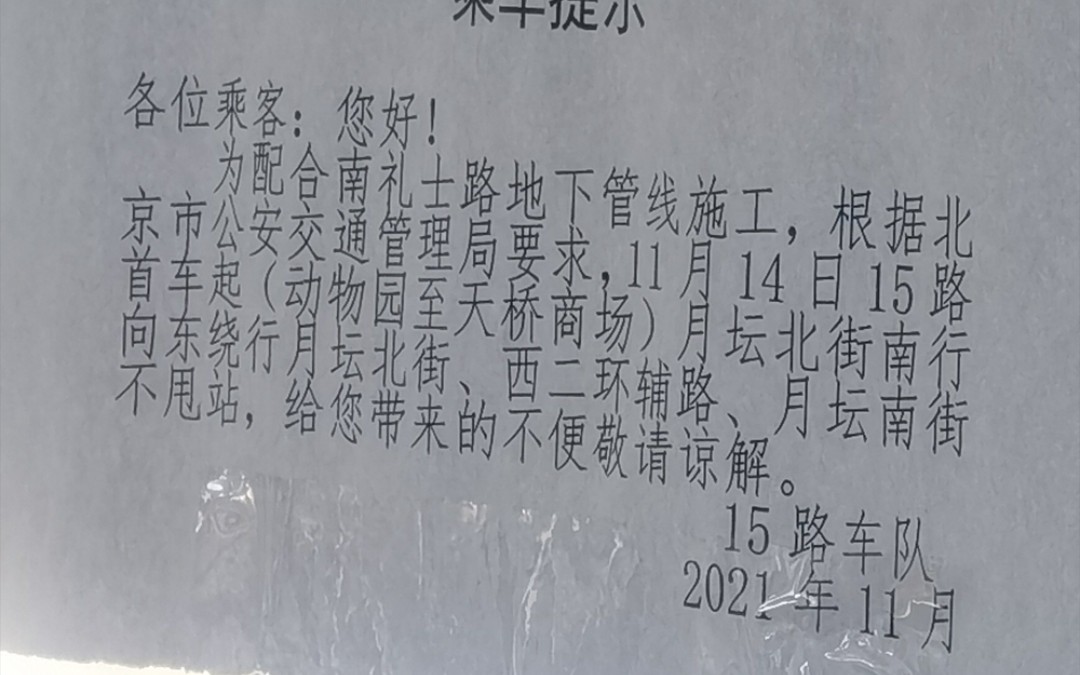 乘车提示
各位乘客：您好！
为配合南礼士路地下管线施工，根据北
京市公安交通管理局要求,11月14日15路
首车起（动物园至天桥商场）月坛北街南行
向东绕行月坛北街、西二环辅路、月坛南街
不甩站，给您带来的不便敬请谅解。
15路车队
2021年11月